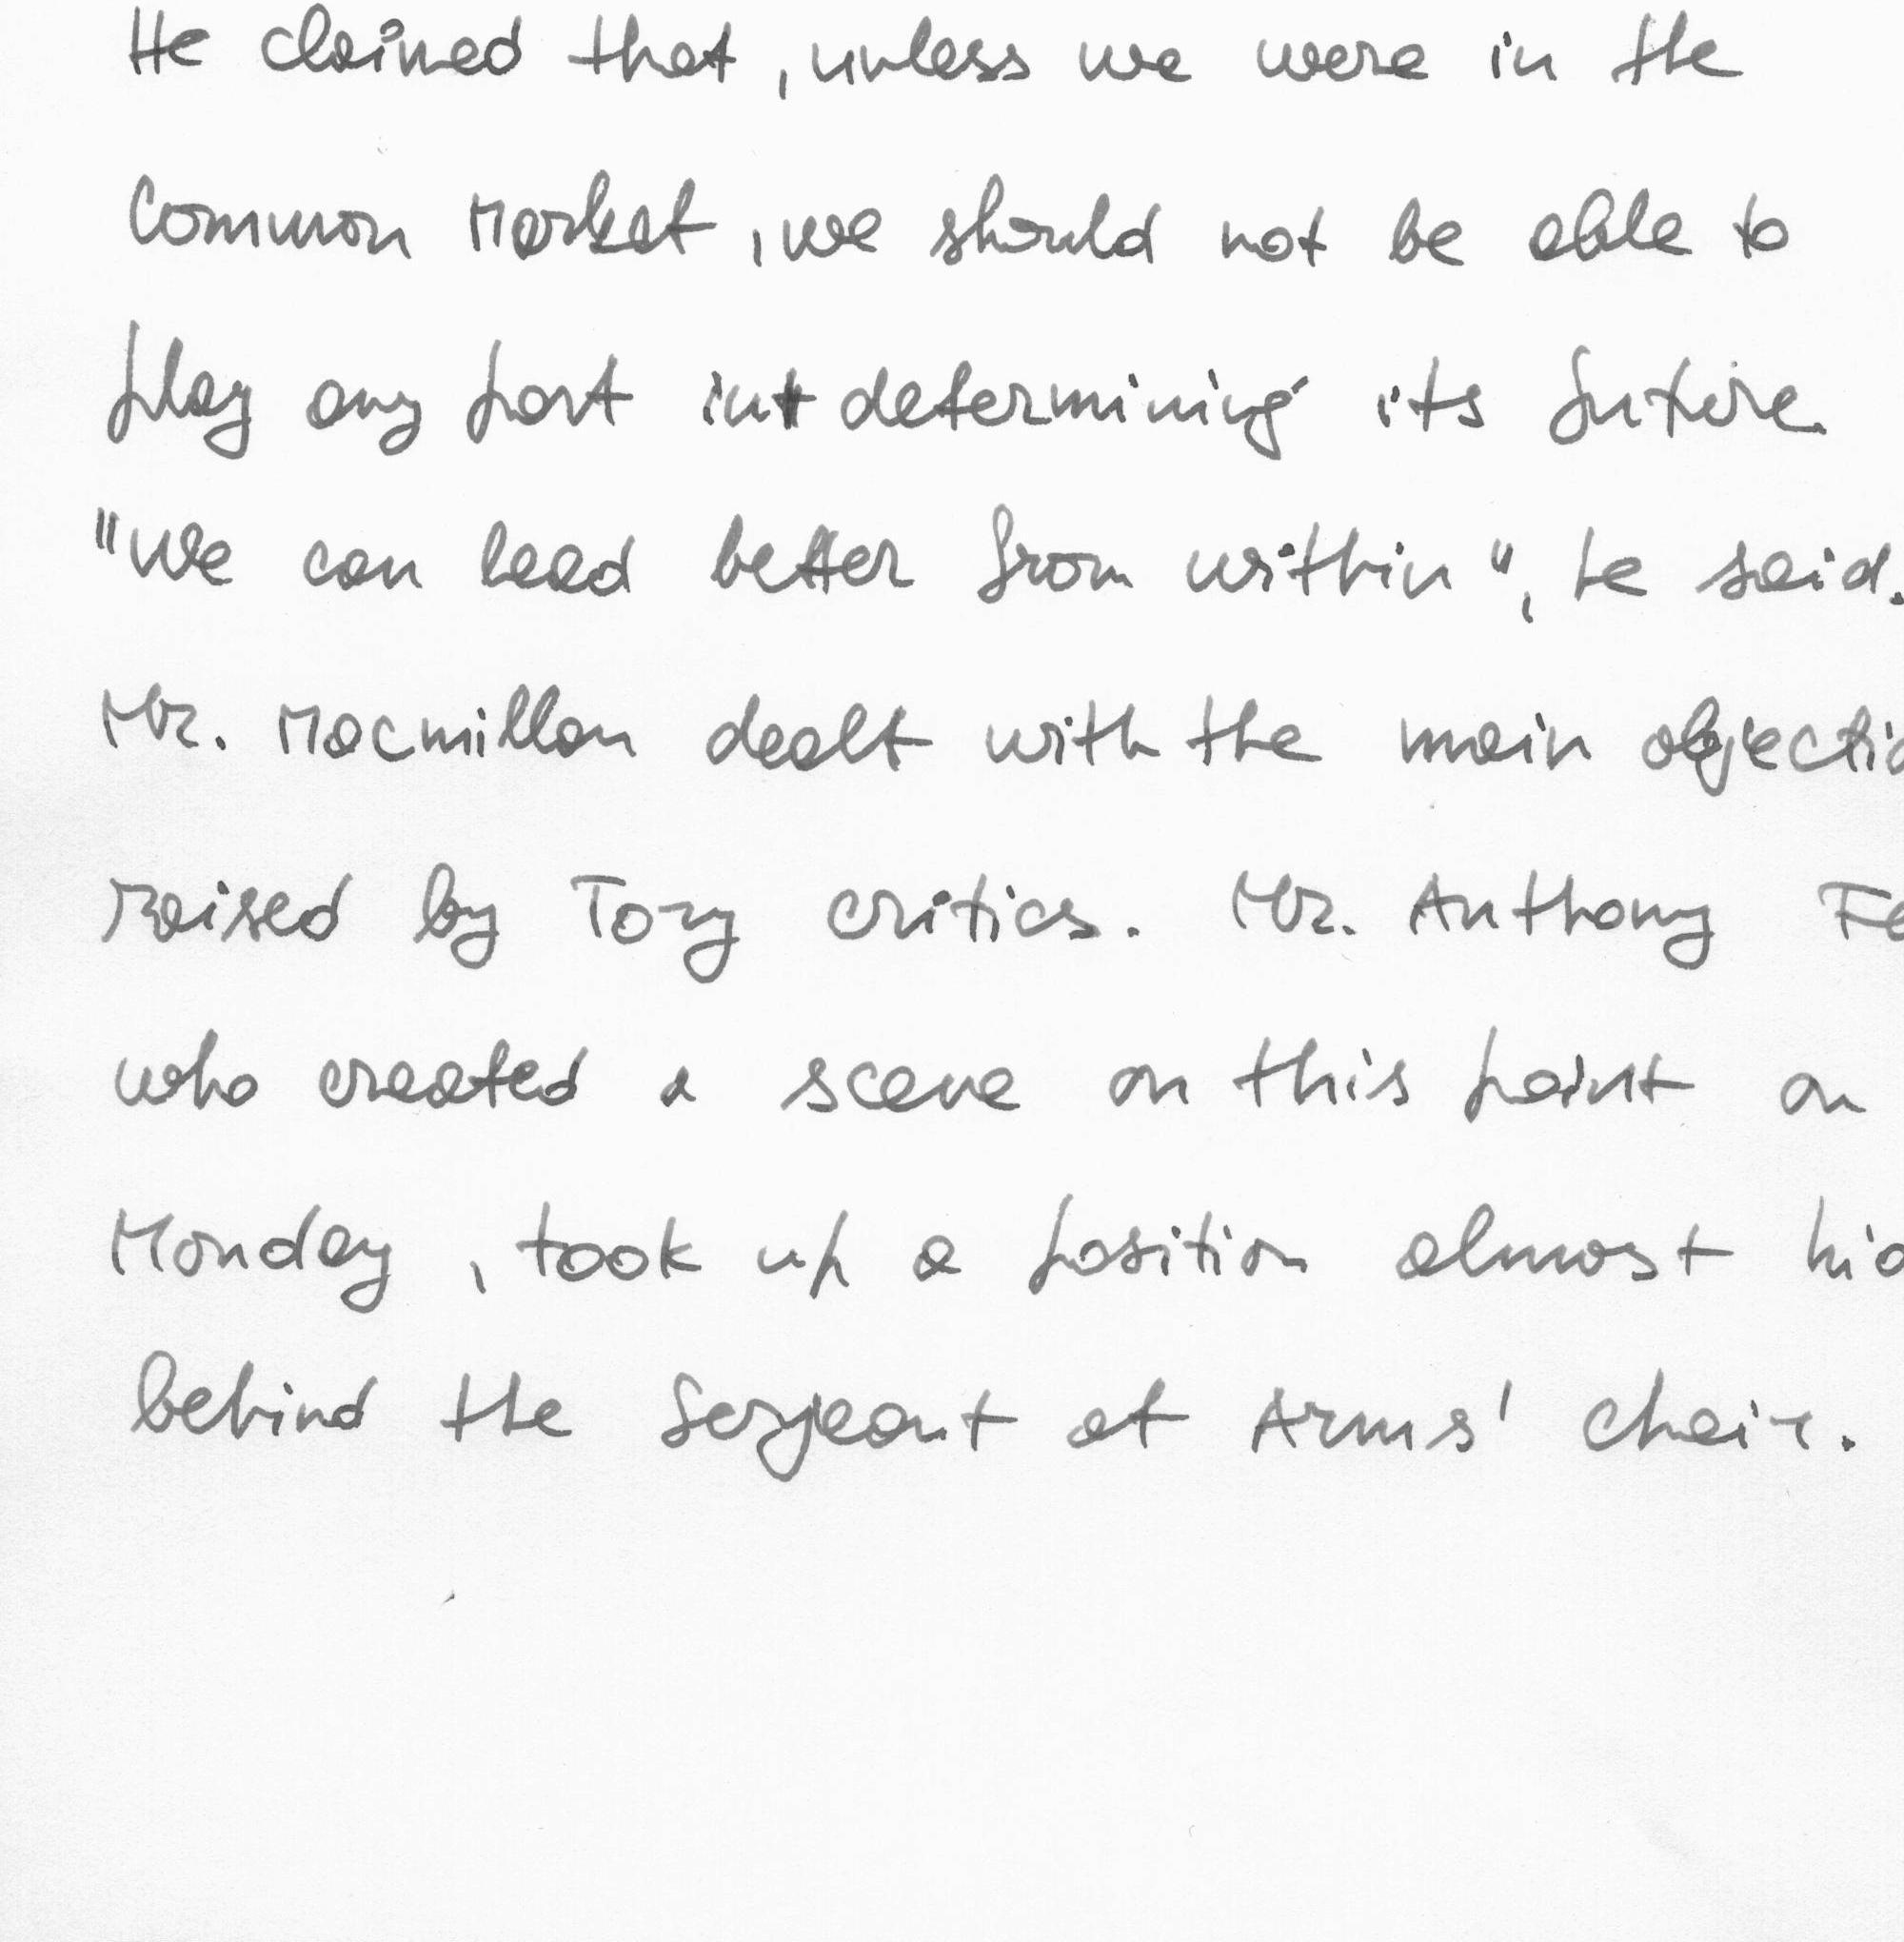 He claimed that, unless we were in the
Common Market, we should not be able to
play any part in determining its future.
"We can lead better from within", he said.
Mr. Macmillan dealt with the main
raised by Tory critics. Mr. Anthony
who created a scene on this point on
Monday, took up a position almost
behind the Serjeant at Arms' chair.